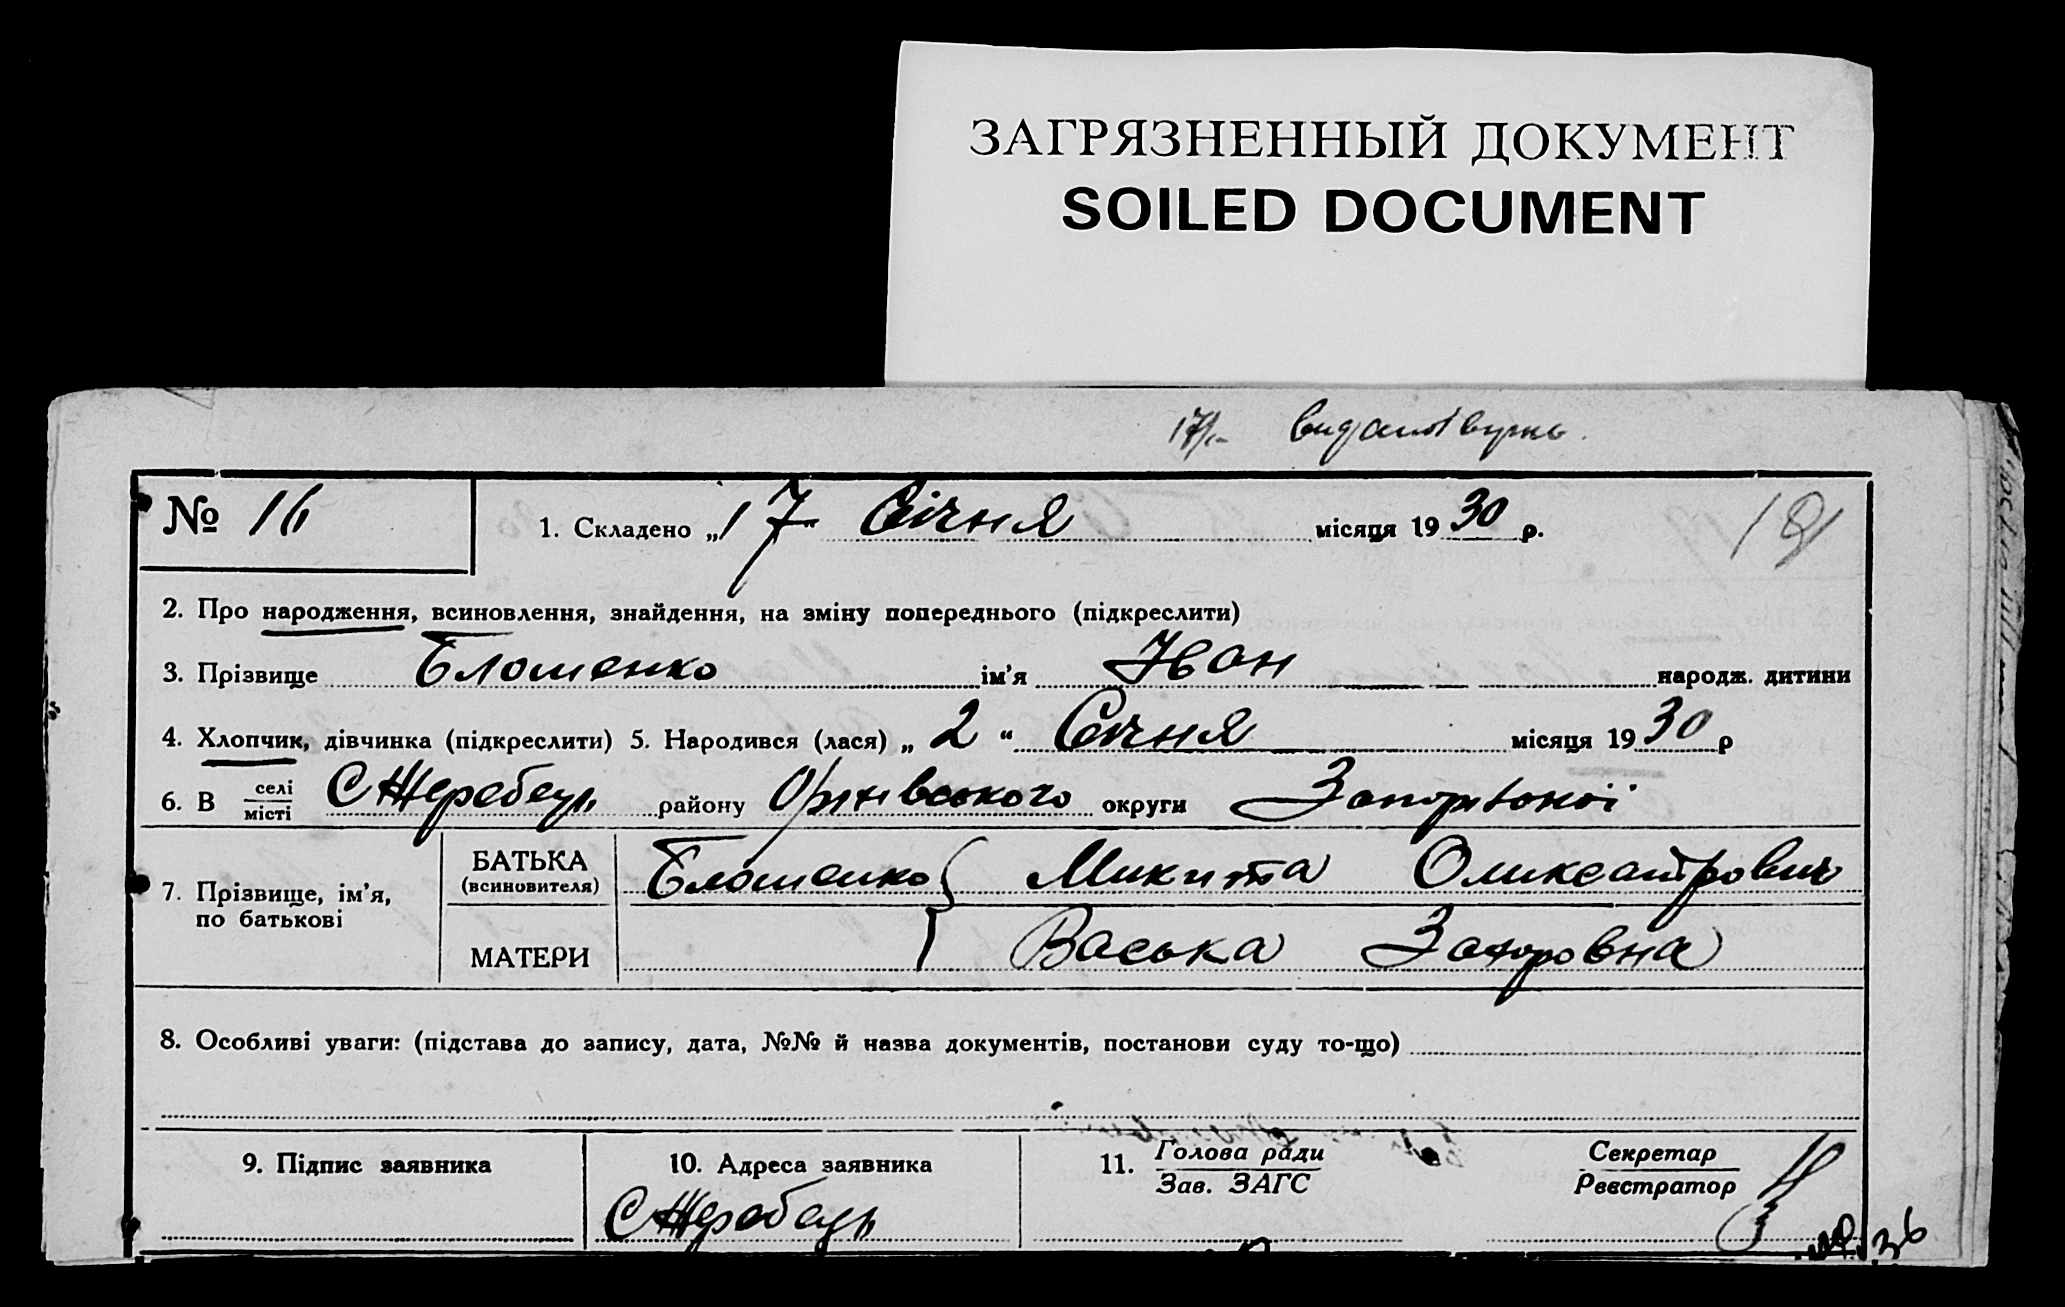 ЗАГРЯЗНЕННЫЙ ДОКУМЕНТ
SOILED DOCUMENT
№ 16
1. Складено „17 Січня місяця 1930 р.
2. Про народження, всиновлення, знайдення, на зміну попереднього (підкреслити)
3. Прізвище Блошенко ім'я Іван народж. дитини
4. Хлопчик, дівчинка (підкреслити) 5. Народився (лася) „ 2 “ Січня місяця 1930 р
6. В селі місті С Жеребець району Оріхівського округи Запорізької
7. Прізвище, ім'я, по батькові
БАТЬКА (всиновителя) Блошенко Микита
МАТЕРИ Васька
8. Особливі уваги: (підстава до запису, дата, №№ й назва документів, постанови суду то-що)
9. Підпис заявника
10. Адреса заявника
С Жеребець
11. Голова ради
Зав. ЗАГС
Секретар
Реєстратор
36